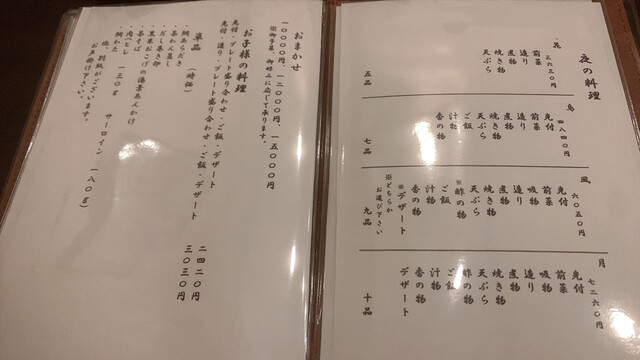 夜の料理
花 三六三〇円
前菜
造り
煮物
焼き物
天ぷら
五品
鳥 四八四〇円
先付
前菜
造り
煮物
焼き物
天ぷら
ご飯
汁物
香の物
七品
風 六〇五〇円
先付
前菜
吸物
造り
煮物
焼き物
天ぷら
※酢の物
ご飯
汁物
香の物
※デザート
※どちらか
お選び下さい
九品
月 七二六〇円
先付
前菜
吸物
造り
煮物
焼き物
天ぷら
酢の物
ご飯
汁物
香の物
デザート
十品
おまかせ
一〇〇〇〇円、一二〇〇〇円、一五〇〇〇円
※御予算、御好みに応じて承ります。
お子様の料理
先付・プレート盛り合わせ・ご飯・デザート 二四二〇円
先付・造り・プレート盛り合わせ・ご飯・デザート 三〇三〇円
単品 (時価)
・鯛あらだき
・茶わん蒸し
・だし巻き卵
・黒米おこげの海素あんかけ
・茶そば
・肉(ヒレ 一三〇g サーロイン 一八〇g)
・鯛わた
他、別紙がございます。
お声掛け下さい。